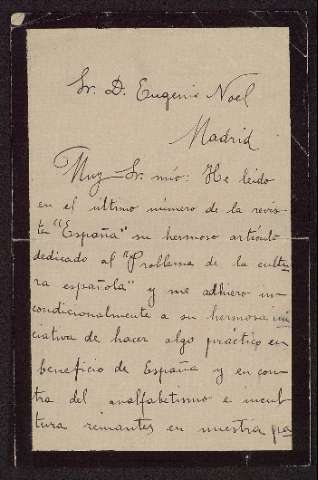 Sr. D. Eugenio Noel
Madrid
Muy Sr. mío: He leído
en el último número de la revis-
ta "España" su hermoso artículo
dedicado al "Problema de la cultu
ra española" y me adhiero in-
condicionalmente a su hermosa ini
ciativa de hacer algo práctico en
beneficio de España y en con-
tra del analfabetismo e incul-
tura reinantes en nuestra pa